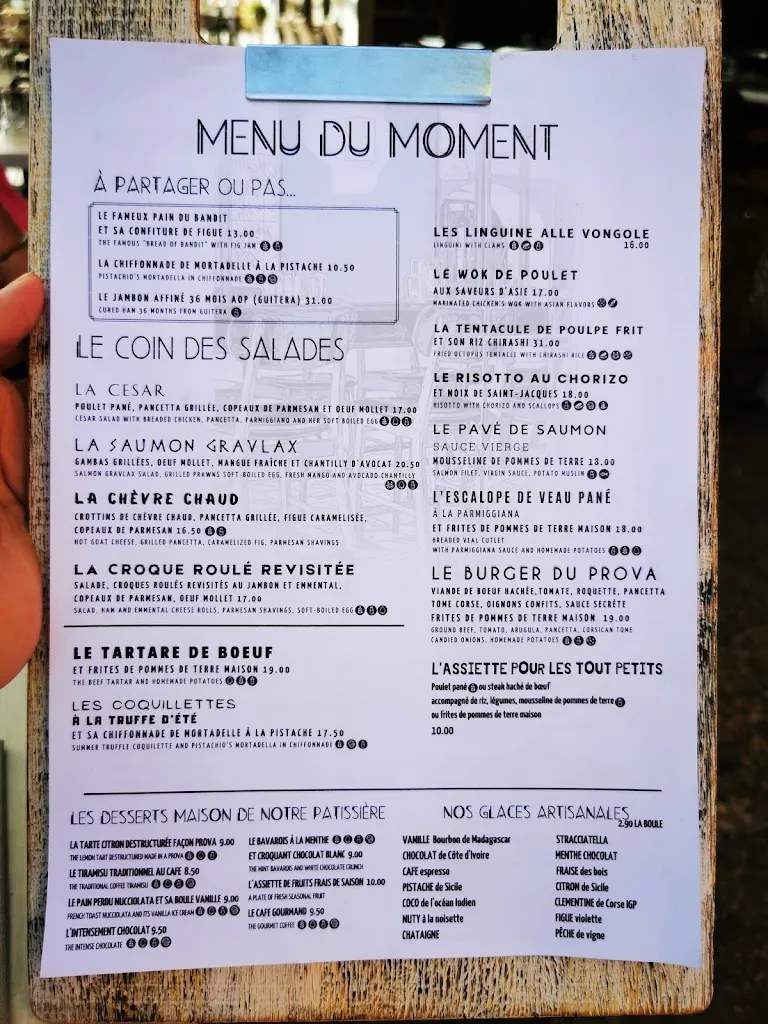 MENU DU MOMENT
À PARTAGER OU PAS...
LE FAMEUX PAIN DU BANDIT
ET SA CONFITURE DE FIGUE 13.00
THE FAMOUS "BREAD OF BANDIT" WITH FIG JAM
LA CHIFFONNADE DE MORTADELLE À LA PISTACHE 10.50
PISTACHIO'S MORTADELLA IN CHIFFONNADE
LE JAMBON AFFINÉ 36 MOIS AOP (GUITERA) 31.00
CURED HAM 36 MONTHS FROM GUITERA
LE COIN DES SALADES
LA CESAR
POULET PANÉ, PANCETTA GRILLÉE, COPEAUX DE PARMESAN ET OEUF MOLLET 17.00
CESAR SALAD WITH BREADED CHICKEN, PANCETTA, PARMIGGIANO AND HER SOFT BOILED EGG
LA SAUMON GRAVLAX
GAMBAS GRILLÉES, OEUF MOLLET, MANGUE FRAÎCHE ET CHANTILLY D'AVOCAT 20.50
SALMON GRAVLAX SALAD, GRILLED PRAWNS SOFT-BOILED EGG, FRESH MANGO AND AVOCADO CHANTILLY
LA CHÈVRE CHAUD
CROTTINS DE CHÈVRE CHAUD, PANCETTA GRILLÉE, FIGUE CARAMELISÉE,
COPEAUX DE PARMESAN 16.50
HOT GOAT CHEESE, GRILLED PANCETTA, CARAMELIZED FIG, PARMESAN SHAVINGS
LA CROQUE ROULÉ REVISITÉE
SALADE, CROQUES ROULÉS REVISITÉS AU JAMBON ET EMMENTAL,
COPEAUX DE PARMESAN, OEUF MOLLET 17.00
SALAD, HAM AND EMMENTAL CHEESE ROLLS, PARMESAN SHAVINGS, SOFT-BOILED EGG
LE TARTARE DE BOEUF
ET FRITES DE POMMES DE TERRE MAISON 19.00
THE BEEF TARTAR AND HOMEMADE POTATOES
LES COQUILLETTES
À LA TRUFFE D'ÉTÉ
ET SA CHIFFONNADE DE MORTADELLE À LA PISTACHE 17.50
SUMMER TRUFFLE COQUILETTE AND PISTACHIO'S MORTADELLA IN CHIFFONNADE
LES LINGUINE ALLE VONGOLE
16.00
LINGUINI WITH CLAMS
LE WOK DE POULET
AUX SAVEURS D'ASIE 17.00
MARINATED CHICKEN'S WOK WITH ASIAN FLAVORS
LA TENTACULE DE POULPE FRIT
ET SON RIZ CHIRASHI 31.00
FRIED OCTOPUS TENTACLE WITH CHIRASHI RICE
LE RISOTTO AU CHORIZO
ET NOIX DE SAINT-JACQUES 18.00
RISOTTO WITH CHORIZO AND SCALLOPS
LE PAVÉ DE SAUMON
SAUCE VIERGE
MOUSSELINE DE POMMES DE TERRE 18.00
SALMON FILET, VIRGIN SAUCE, POTATO MUSLIN
L'ESCALOPE DE VEAU PANÉ
À LA PARMIGGIANA
ET FRITES DE POMMES DE TERRE MAISON 18.00
BREADED VEAL CUTLET
WITH PARMIGGIANA SAUCE AND HOMEMADE POTATOES
LE BURGER DU PROVA
VIANDE DE BOEUF HACHÉE, TOMATE, ROQUETTE, PANCETTA
TOME CORSE, OIGNONS CONFITS, SAUCE SECRÈTE
FRITES DE POMMES DE TERRE MAISON 19.00
GROUND BEEF, TOMATO, ARUGULA, PANCETTA, CORSICAN TOME
CANDIED ONIONS, HOMEMADE POTATOES
L'ASSIETTE POUR LES TOUT PETITS
Poulet pané ou steak haché de bœuf
accompagné de riz, légumes, mousseline de pommes de terre
ou frites de pommes de terre maison
10.00
LES DESSERTS MAISON DE NOTRE PATISSIÈRE
LA TARTE CITRON DESTRUCTURÉE FAÇON PROVA 9.00
THE LEMON TART DESTRUCTURED MADE IN A PROVA
LE TIRAMISU TRADITIONNEL AU CAFE 8.50
THE TRADITIONAL COFFEE TIRAMISU
LE PAIN PERDU NUCCIOLATA ET SA BOULE VANILLE 9.00
FRENCH TOAST NUCCIOLATA AND ITS VANILLA ICE CREAM
L'INTENSEMENT CHOCOLAT 9.50
THE INTENSE CHOCOLATE
LE BAVAROIS À LA MENTHE
ET CROQUANT CHOCOLAT BLANC 9.00
THE MINT BAVAROIS AND WHITE CHOCOLATE CRUNCH
L'ASSIETTE DE FRUITS FRAIS DE SAISON 10.00
A PLATE OF FRESH SEASONAL FRUIT
LE CAFE GOURMAND 9.50
THE GOURMET COFFEE
NOS GLACES ARTISANALES
2.90 LA BOULE
VANILLE Bourbon de Madagascar
CHOCOLAT de Côte d'Ivoire
CAFE espresso
PISTACHE de Sicile
COCO de l'océan Indien
NUTY à la noisette
CHATAIGNE
STRACCIATELLA
MENTHE CHOCOLAT
FRAISE des bois
CITRON de Sicile
CLEMENTINE de Corse IGP
FIGUE violette
PÊCHE de vigne